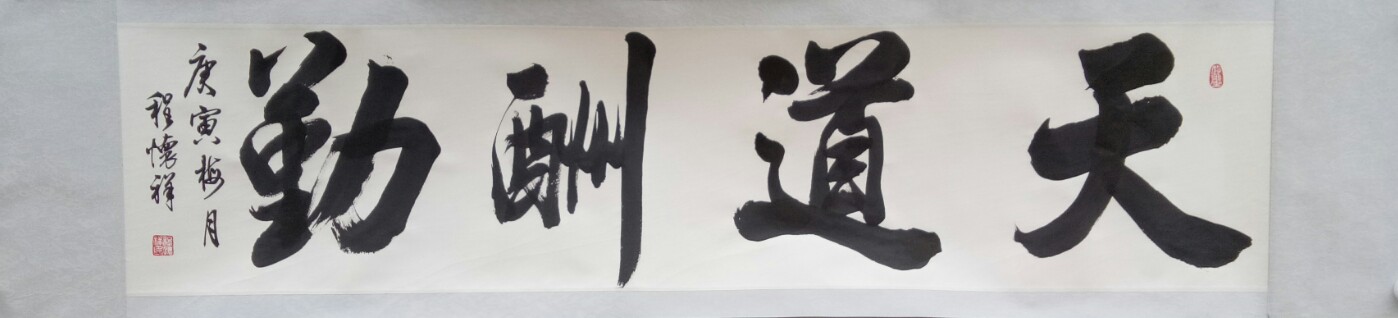 天道酬勤
庚寅梅月
程懷祥